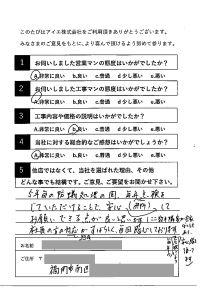 このたびはアイズ株式会社をご利用頂きありがとうございます。
みなさまのご意見をもとに、より喜んで頂けるよう努めて参ります。
1 お伺いしました営業マンの態度はいかがでしたか?
a.非常に良い b.良い c.普通 d.少し悪い e.悪い
2 お伺いしました工事マンの態度はいかがでしたか?
a.非常に良い b.良い c.普通 d.少し悪い e.悪い
3 工事内容や価格の説明はいかがでしたか?
a.非常に良い b.良い c.普通 d.少し悪い e.悪い
4 当社に対する総合的なご感想はいかがでしょうか?
a.非常に良い b.良い c.普通 d.少し悪い e.悪い
5 他店ではなくて、当社を選ばれた理由、その他
どんな事でも結構です。ご意見、ご要望をお聞かせ下さい。
5年間の 処理後の間、毎年点検を
していただけることで、安心 (無料) して
お願いできる
社員の方の対応がすばらしく、毎回感じております
お名前
ご住所 〒
福岡市南区